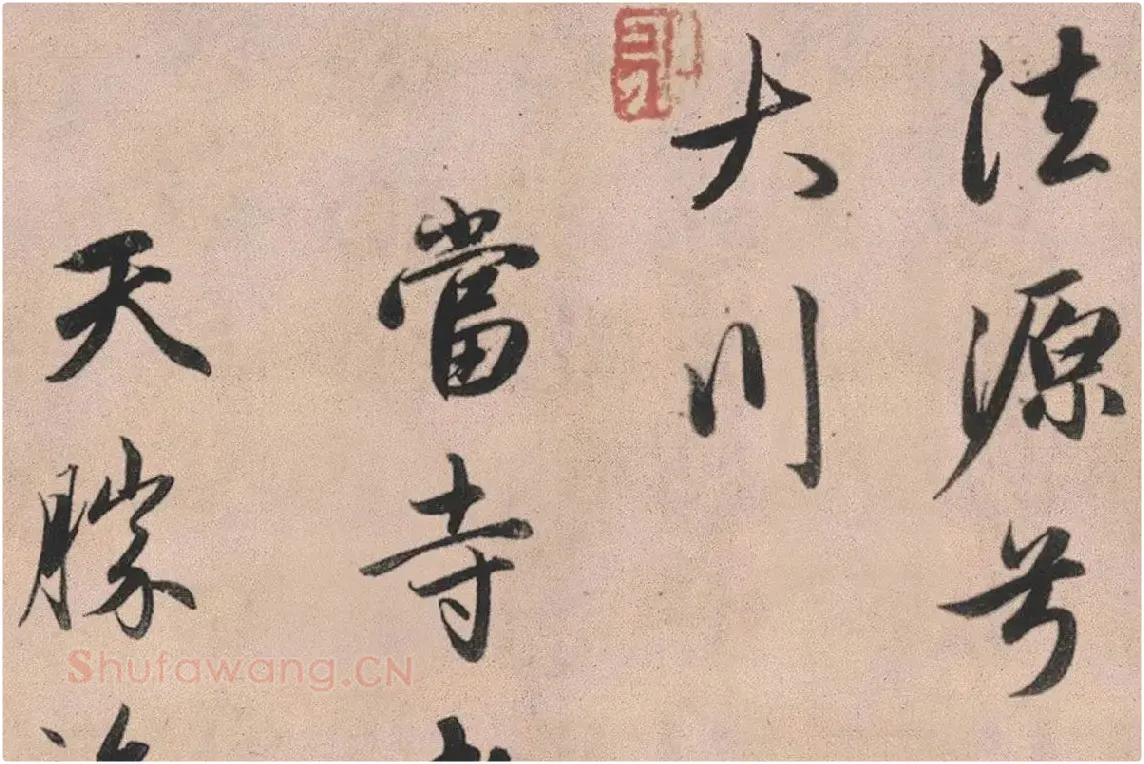 法源号
大川
當寺
天
Shufawang.CN